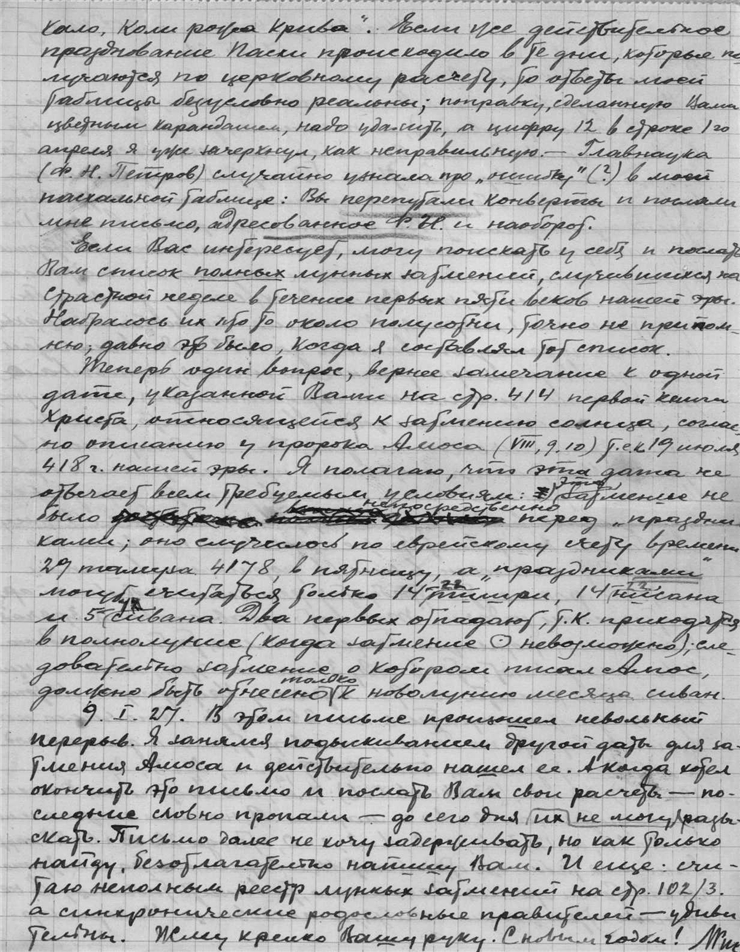 кало, коли рожа крива". Если уже действительное
празднование Пасхи происходило в те дни, которые по
лучаются по церковному расчету, то ответы моей
таблицы безусловно реальны; поправку, сделанную Вами
цветным карандашем, надо удалить, а цифру 12 в строке 1го
апреля я уже зачеркнул, как неправильную. — Главнаука
(Ф. Н. Петров) случайно узнала про „ошибку" (?) в моей
пасхальной таблице: Вы перепутали конверты и послали
мне письмо, адресованное Ф. Н. и наоборот.
Если Вас интересует, могу поискать у себя и послать
Вам список полных лунных затмений, случившихся на
страстной неделе в течение первых пяти веков нашей эры.
Набралось их что то около полусотни, точно не припом-
ню; давно это было, когда я составлял тот список.
Теперь один вопрос, вернее замечание к одной
дате, указанной Вами на стр. 414 первой книги
Христа, относящейся к затмению солнца, соглас
но описанию у пророка Амоса (VIII, 9, 10) т. е. к 19 июля
418 г. нашей эры. Я полагаю, что эта дата не
отвечает всем требуемым условиям: это затмение не
было непосредственно перед „праздни
ками; оно случилось по еврейскому счету времени
29 тамуза 4178, в пятницу, а „праздниками"
могут считаться только 14–22 тишри, 14 нисана
и 5 сивана. Два первых отпадают, т. к. приходятся
в полнолуние (когда затмение ☉ невозможно); сле-
довательно затмение, о котором писал Амос,
должно быть отнесено только к новолунию месяца сиван.
9. I. 27. В этом письме произошел невольный
перерыв. Я занялся подыскиванием другой даты для за-
тмения Амоса и действительно нашел ее. А когда хотел
окончить это письмо и послать Вам свои расчеты — по-
следние словно пропали — до сего дня их не могу разы-
скать. Письмо далее не хочу задерживать, но как только
найду, безотлагательно напишу Вам. И еще: счи-
таю неполным реестр лунных затмений на стр. 102/3.
а синхронические родословные правителей — удиви
тельны. Жму крепко Вашу руку. С новым годом!